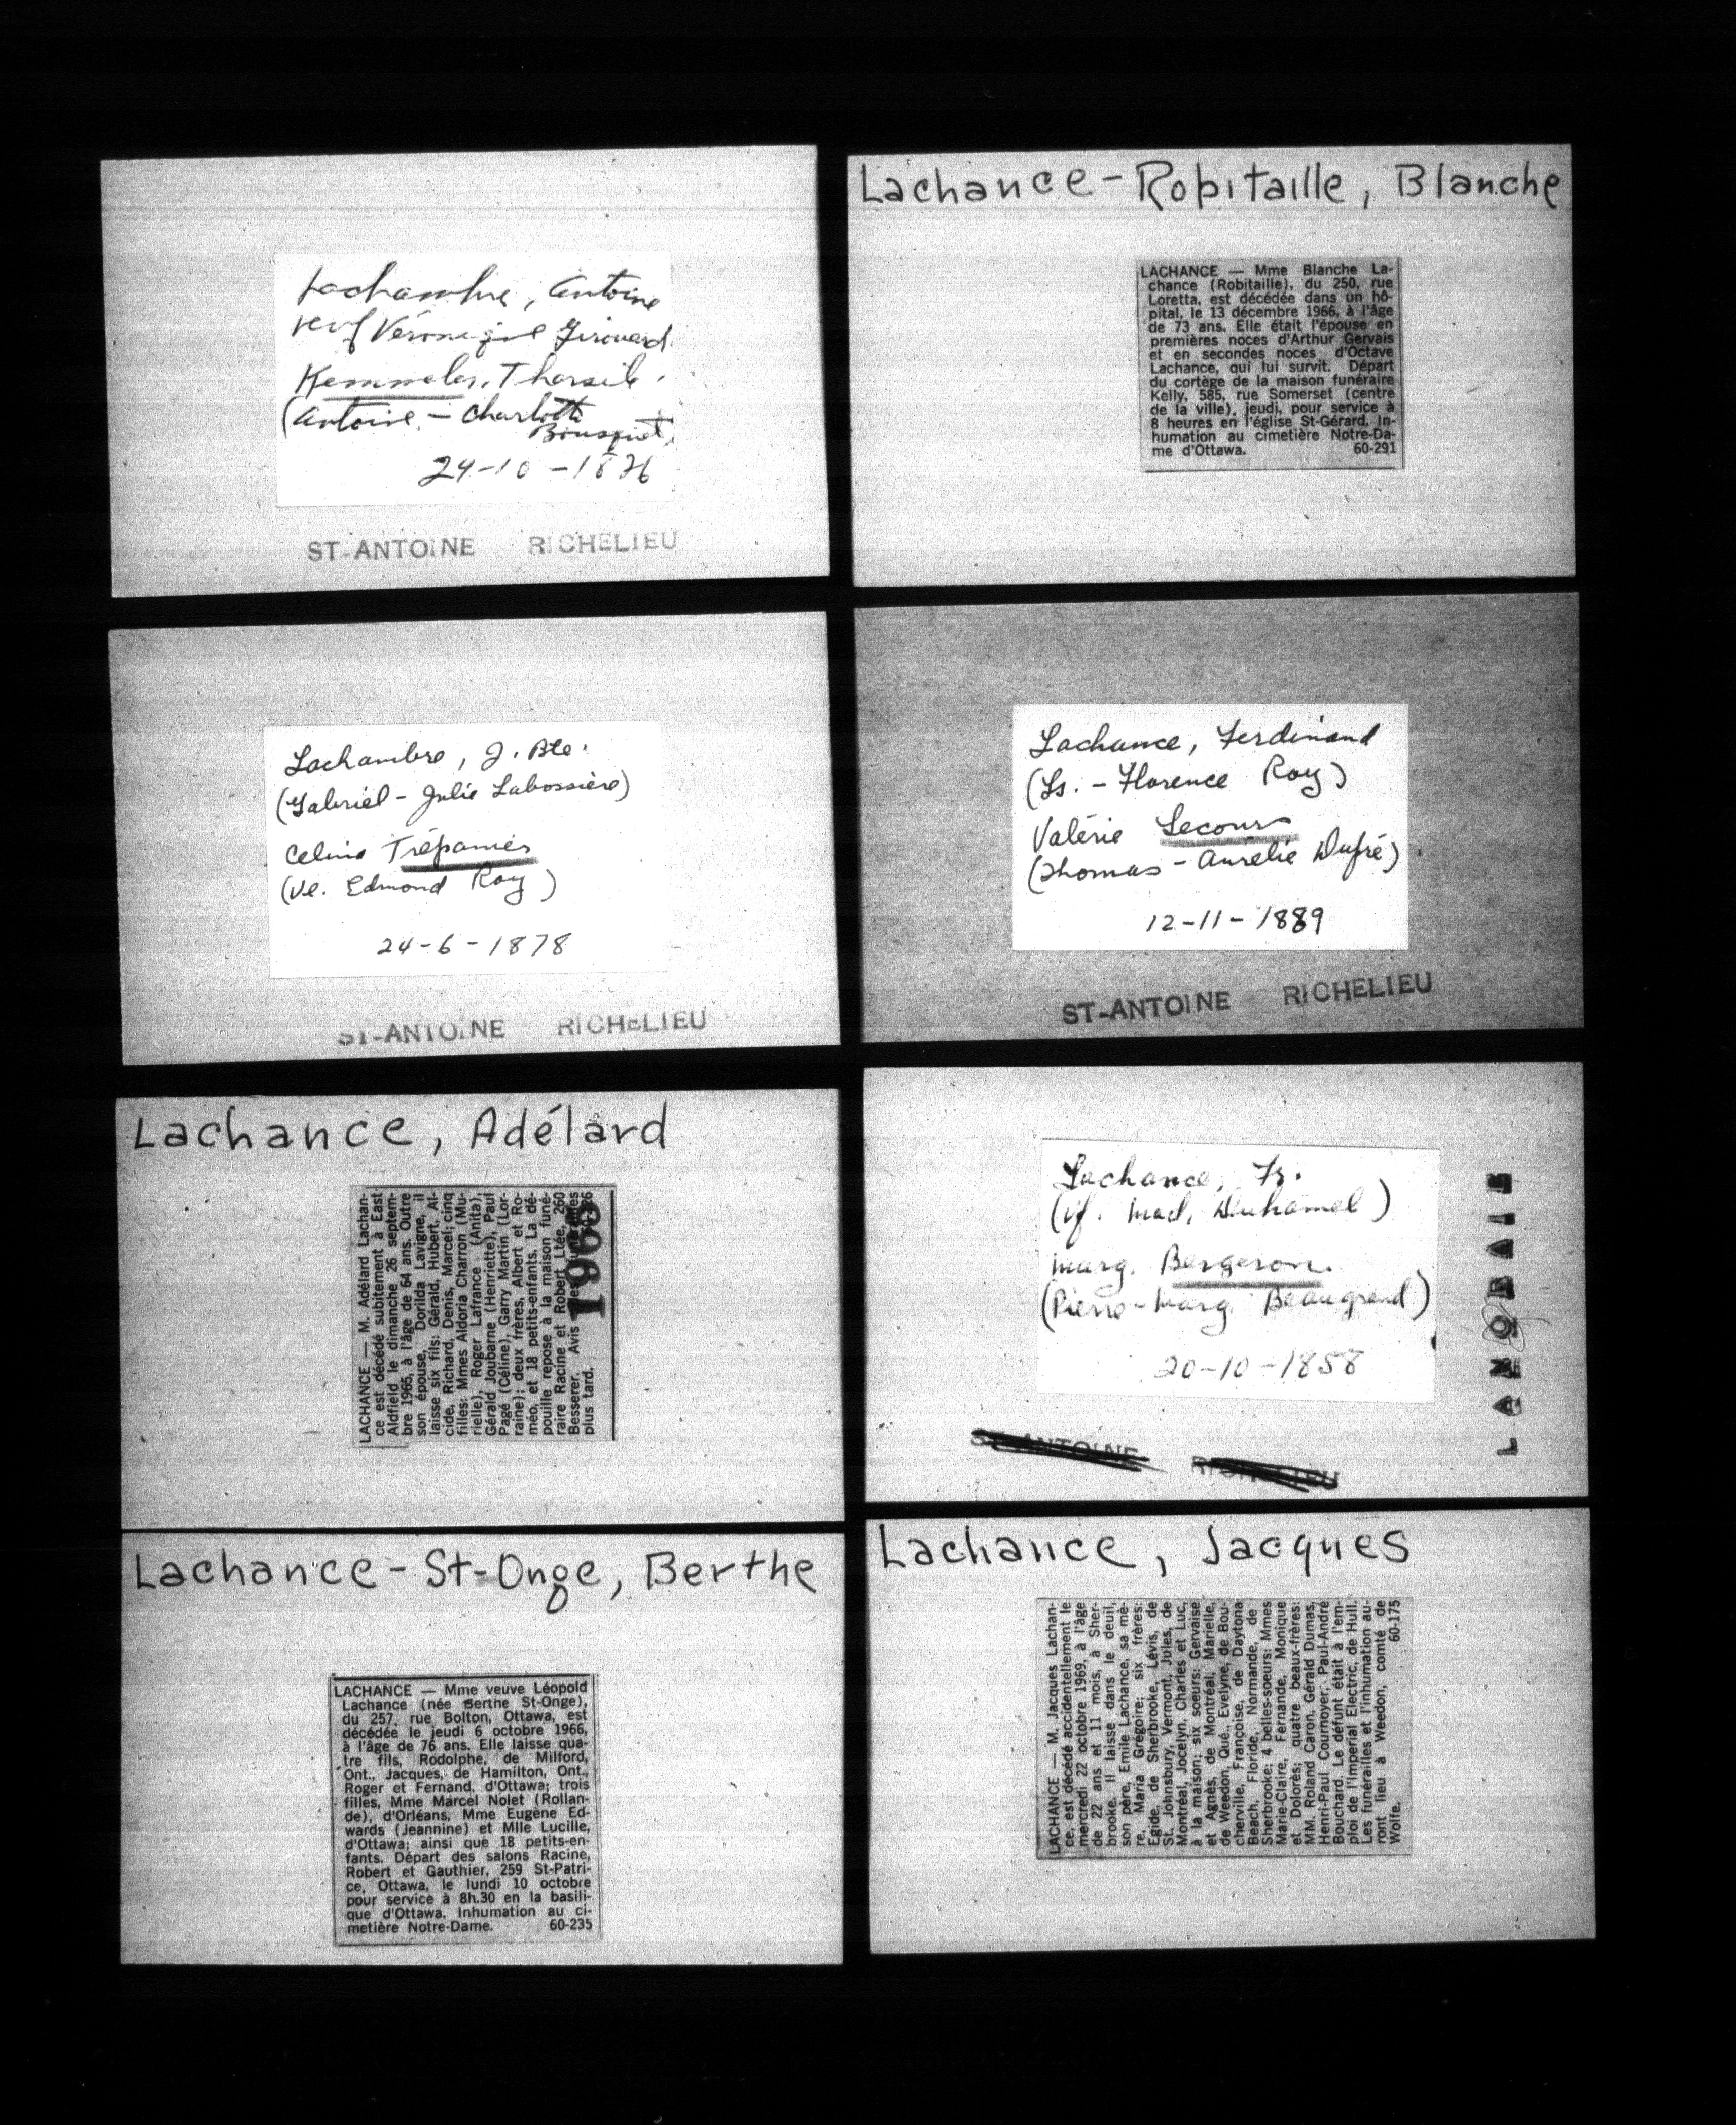 Lachambre, Antoine
veuf Véronique Girouard.
Kemmeler, Tharsile.
(Antoine. - Charlotte
Bousquet.
24-10-1876
ST-ANTOINE RICHELIEU
Lachambre, J. Bte.
(Gabriel - Julie Labossière)
Celina Trépanier
(Ve. Edmond Roy)
24-6-1878
ST-ANTOINE RICHELIEU
Lachance, Adélard
LACHANCE — M. Adélard Lachan-
ce est décédé subitement à East
Aldfield le dimanche 26 septem-
bre 1965, à l'âge de 64 ans. Outre
son épouse, Dorilda Lavigne, il
laisse six fils: Gérald, Hubert, Al-
cide, Richard, Denis, Marcel; cinq
filles: Mmes Aldoria Charron (Mu-
rielle), Roger Lafrance (Anita),
Gérald Joubarne (Henriette), Paul
Pagé (Céline), Garry Martin (Lor-
raine); deux frères, Albert et Ro-
méo, et 18 petits-enfants. La dé-
pouille repose à la maison funé-
raire Racine et Robert Ltée, 260
Besserer. Avis des
plus tard.
Lachance-St-Onge, Berthe
LACHANCE — Mme veuve Léopold
Lachance (née Berthe St-Onge),
du 257, rue Bolton, Ottawa, est
décédée le jeudi 6 octobre 1966,
à l'âge de 76 ans. Elle laisse qua-
tre fils, Rodolphe, de Milford,
Ont., Jacques, de Hamilton, Ont.,
Roger et Fernand, d'Ottawa; trois
filles, Mme Marcel Nolet (Rollan-
de), d'Orléans, Mme Eugène Ed-
wards (Jeannine) et Mlle Lucille,
d'Ottawa; ainsi que 18 petits-en-
fants. Départ des salons Racine,
Robert et Gauthier, 259 St-Patri-
ce, Ottawa, le lundi 10 octobre
pour service à 8h.30 en la basili-
que d'Ottawa. Inhumation au ci-
metière Notre-Dame. 60-235
Lachance-Robitaille, Blanche
LACHANCE — Mme Blanche La-
chance (Robitaille), du 250, rue
Loretta, est décédée dans un hô-
pital, le 13 décembre 1966, à l'âge
de 73 ans. Elle était l'épouse en
premières noces d'Arthur Gervais
et en secondes noces d'Octave
Lachance, qui lui survit. Départ
du cortège de la maison funéraire
Kelly, 585, rue Somerset (centre
de la ville), jeudi, pour service à
8 heures en l'église St-Gérard. In-
humation au cimetière Notre-Da-
me d'Ottawa. 60-291
Lachance, Ferdinand
(Ls. - Florence Roy)
Valérie Lecours
(Thomas - Aurélie Dufré)
12-11-1889
ST-ANTOINE RICHELIEU
Lachance, Fr.
(vf. Mad. Duhamel)
Marg. Bergeron.
(Pierre - Marg. Beaugrand)
20-10-1858
ST-ANTOINE RICHELIEU
LANORAIE
Lachance, Jacques
LACHANCE — M. Jacques Lachan-
ce, est décédé accidentellement le
mercredi 22 octobre 1969, à l'âge
de 22 ans et 11 mois, à Sher-
brooke. Il laisse dans le deuil,
son père, Emile Lachance, sa mè-
re, Maria Grégoire; six frères:
Egide, de Sherbrooke, Lévis, de
St. Johnsbury, Vermont, Jules, de
Montréal, Jocelyn, Charles et Luc,
à la maison; six soeurs: Gervaise
et Agnès, de Montréal, Marielle,
de Weedon, Qué., Evelyne, de Bou-
cherville, Françoise, de Daytona
Beach, Floride, Normande, de
Sherbrooke; 4 belles-soeurs: Mmes
Marie-Claire, Fernande, Monique
et Dolorès; quatre beaux-frères:
MM. Roland Caron, Gérald Dumas,
Henri-Paul Cournoyer, Paul-André
Bouchard. Le défunt était à l'em-
ploi de l'Imperial Electric, de Hull.
Les funérailles et l'inhumation au-
ront lieu à Weedon, comté de
Wolfe. 60-175